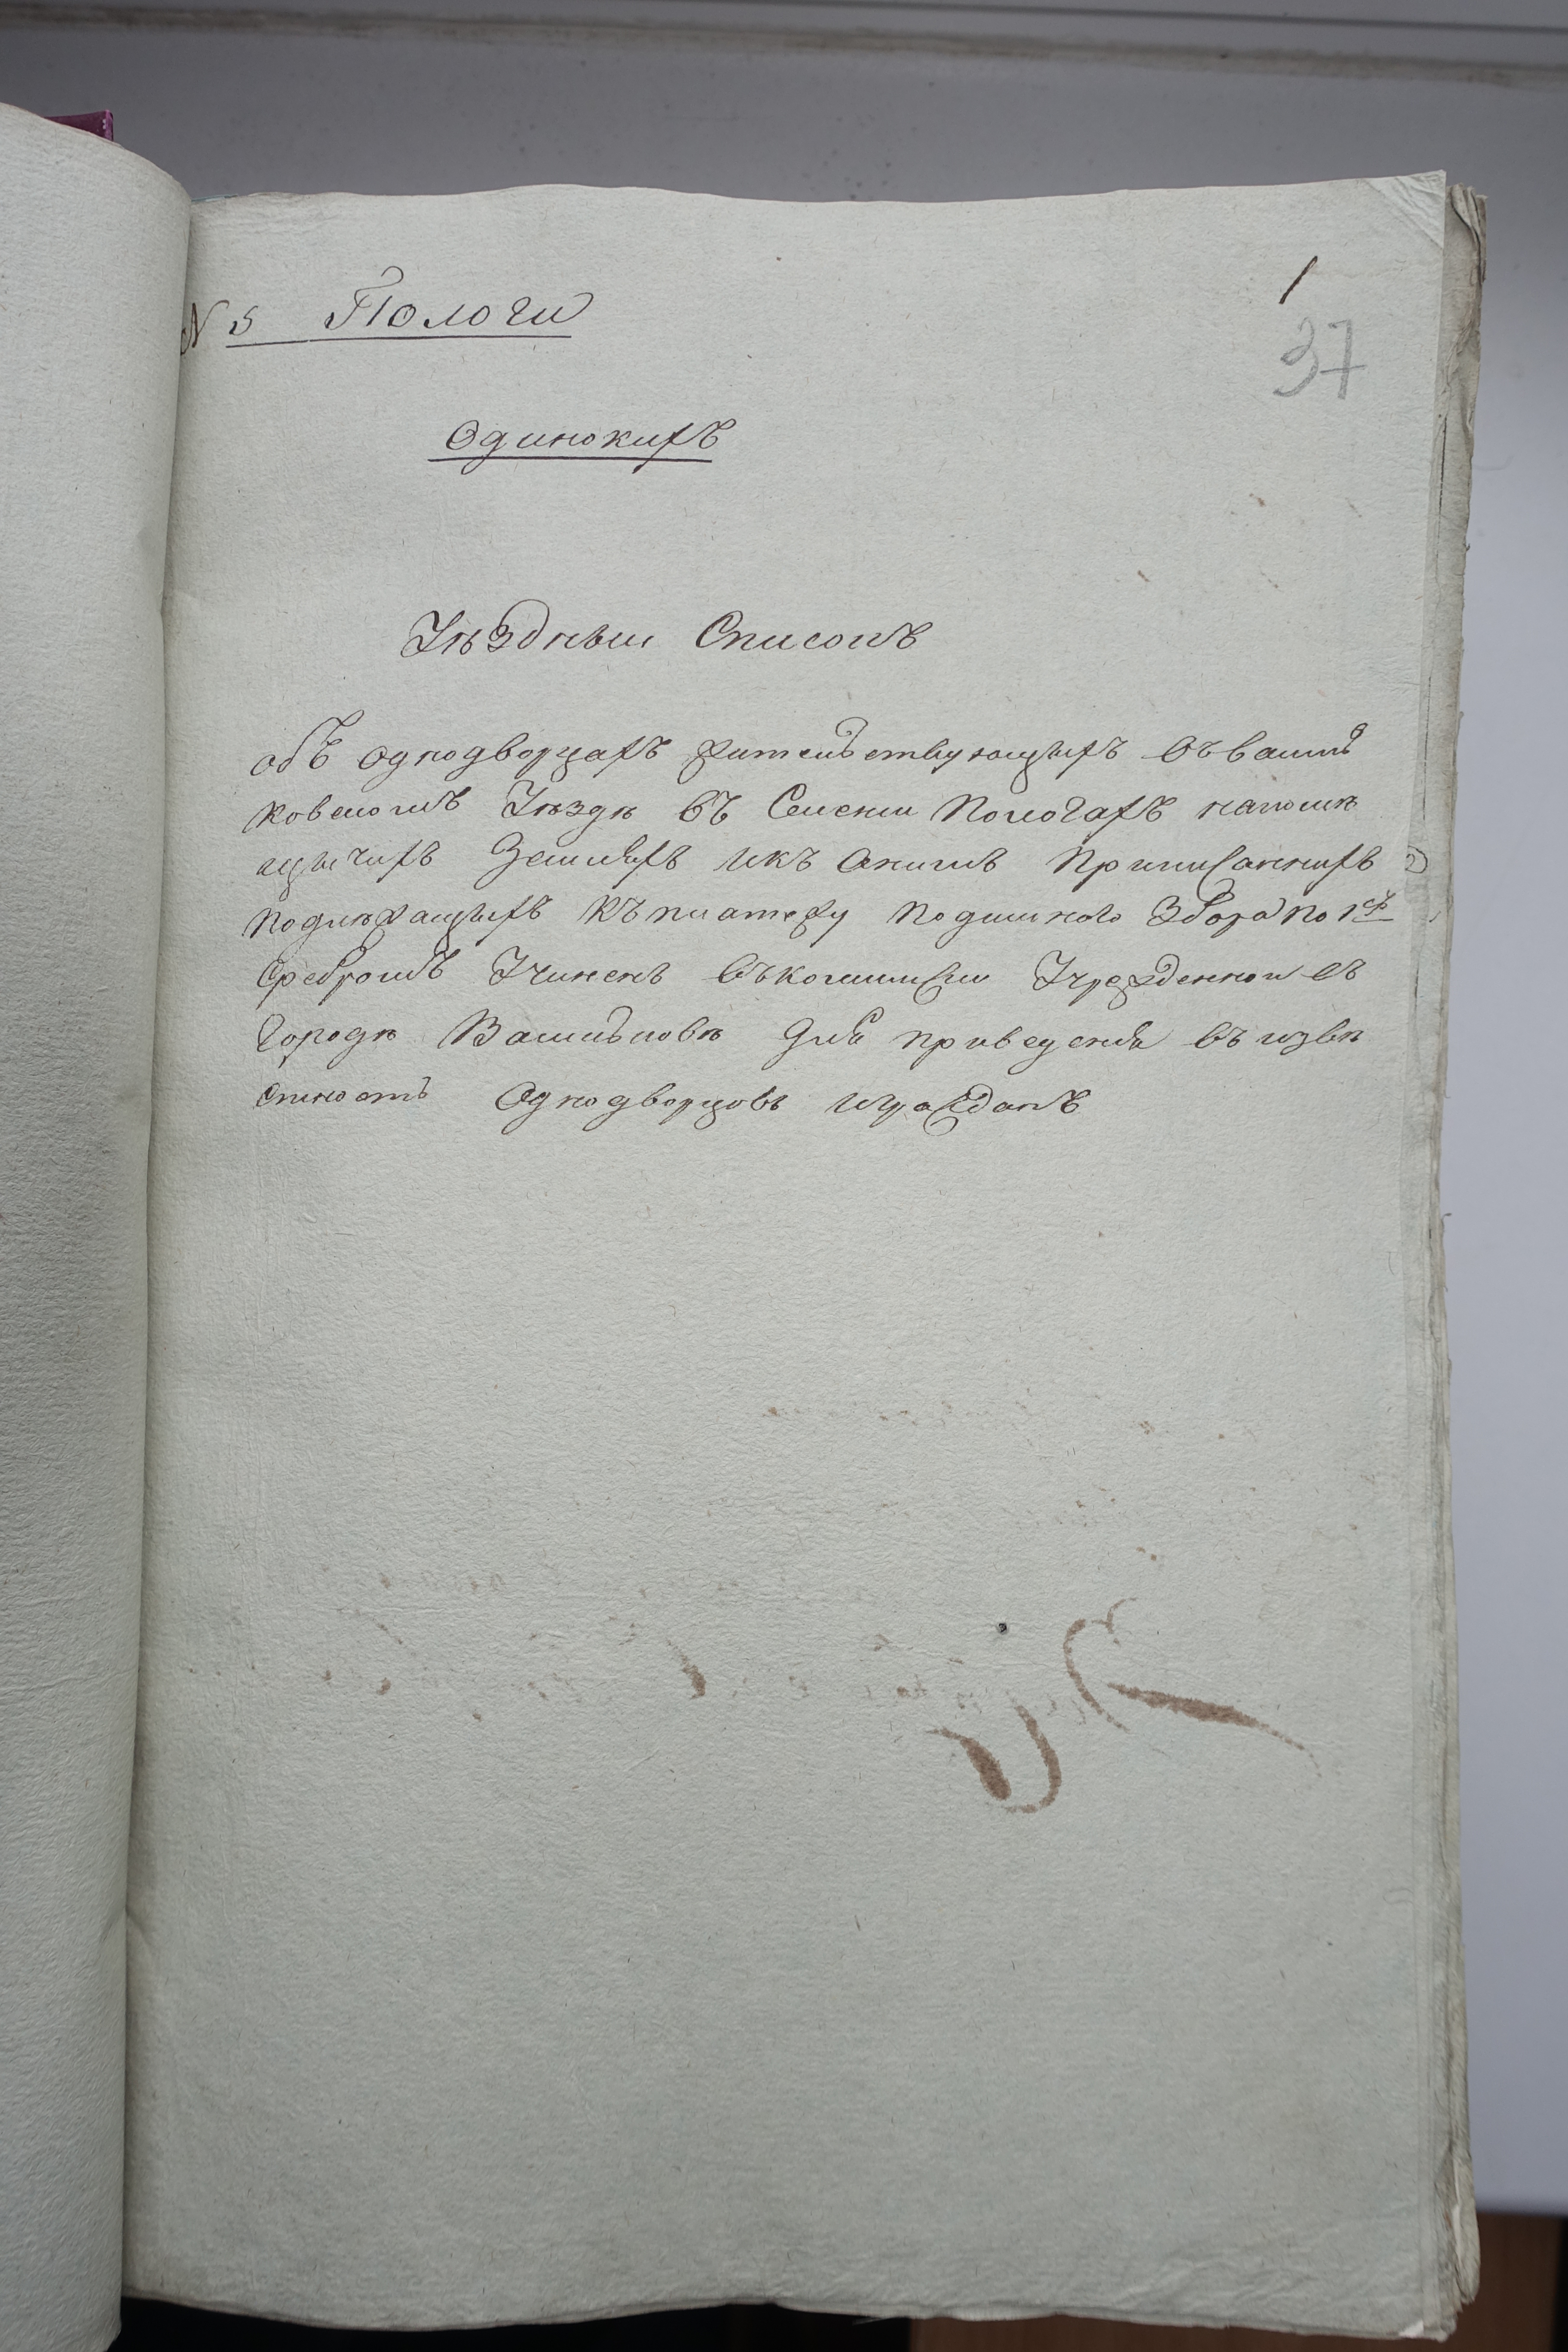 1
37
N 5 Пологи
Одинокихъ
Уѣздный Списокъ
объ однодворцахъ жительствующихъ въ Василь
ковскомъ Уѣздѣ въ Селении Пологахъ на помѣ
щичихъ Земляхъ и къ онымъ Приписанныхъ
подлѣжащихъ къ платежу подымного Збора по 1 ср
сребромъ Учиненъ въ комиссии Учрежденной въ
Городѣ Васильковѣ для приведения въ извѣ
стность Однодворцовъ и гражданъ